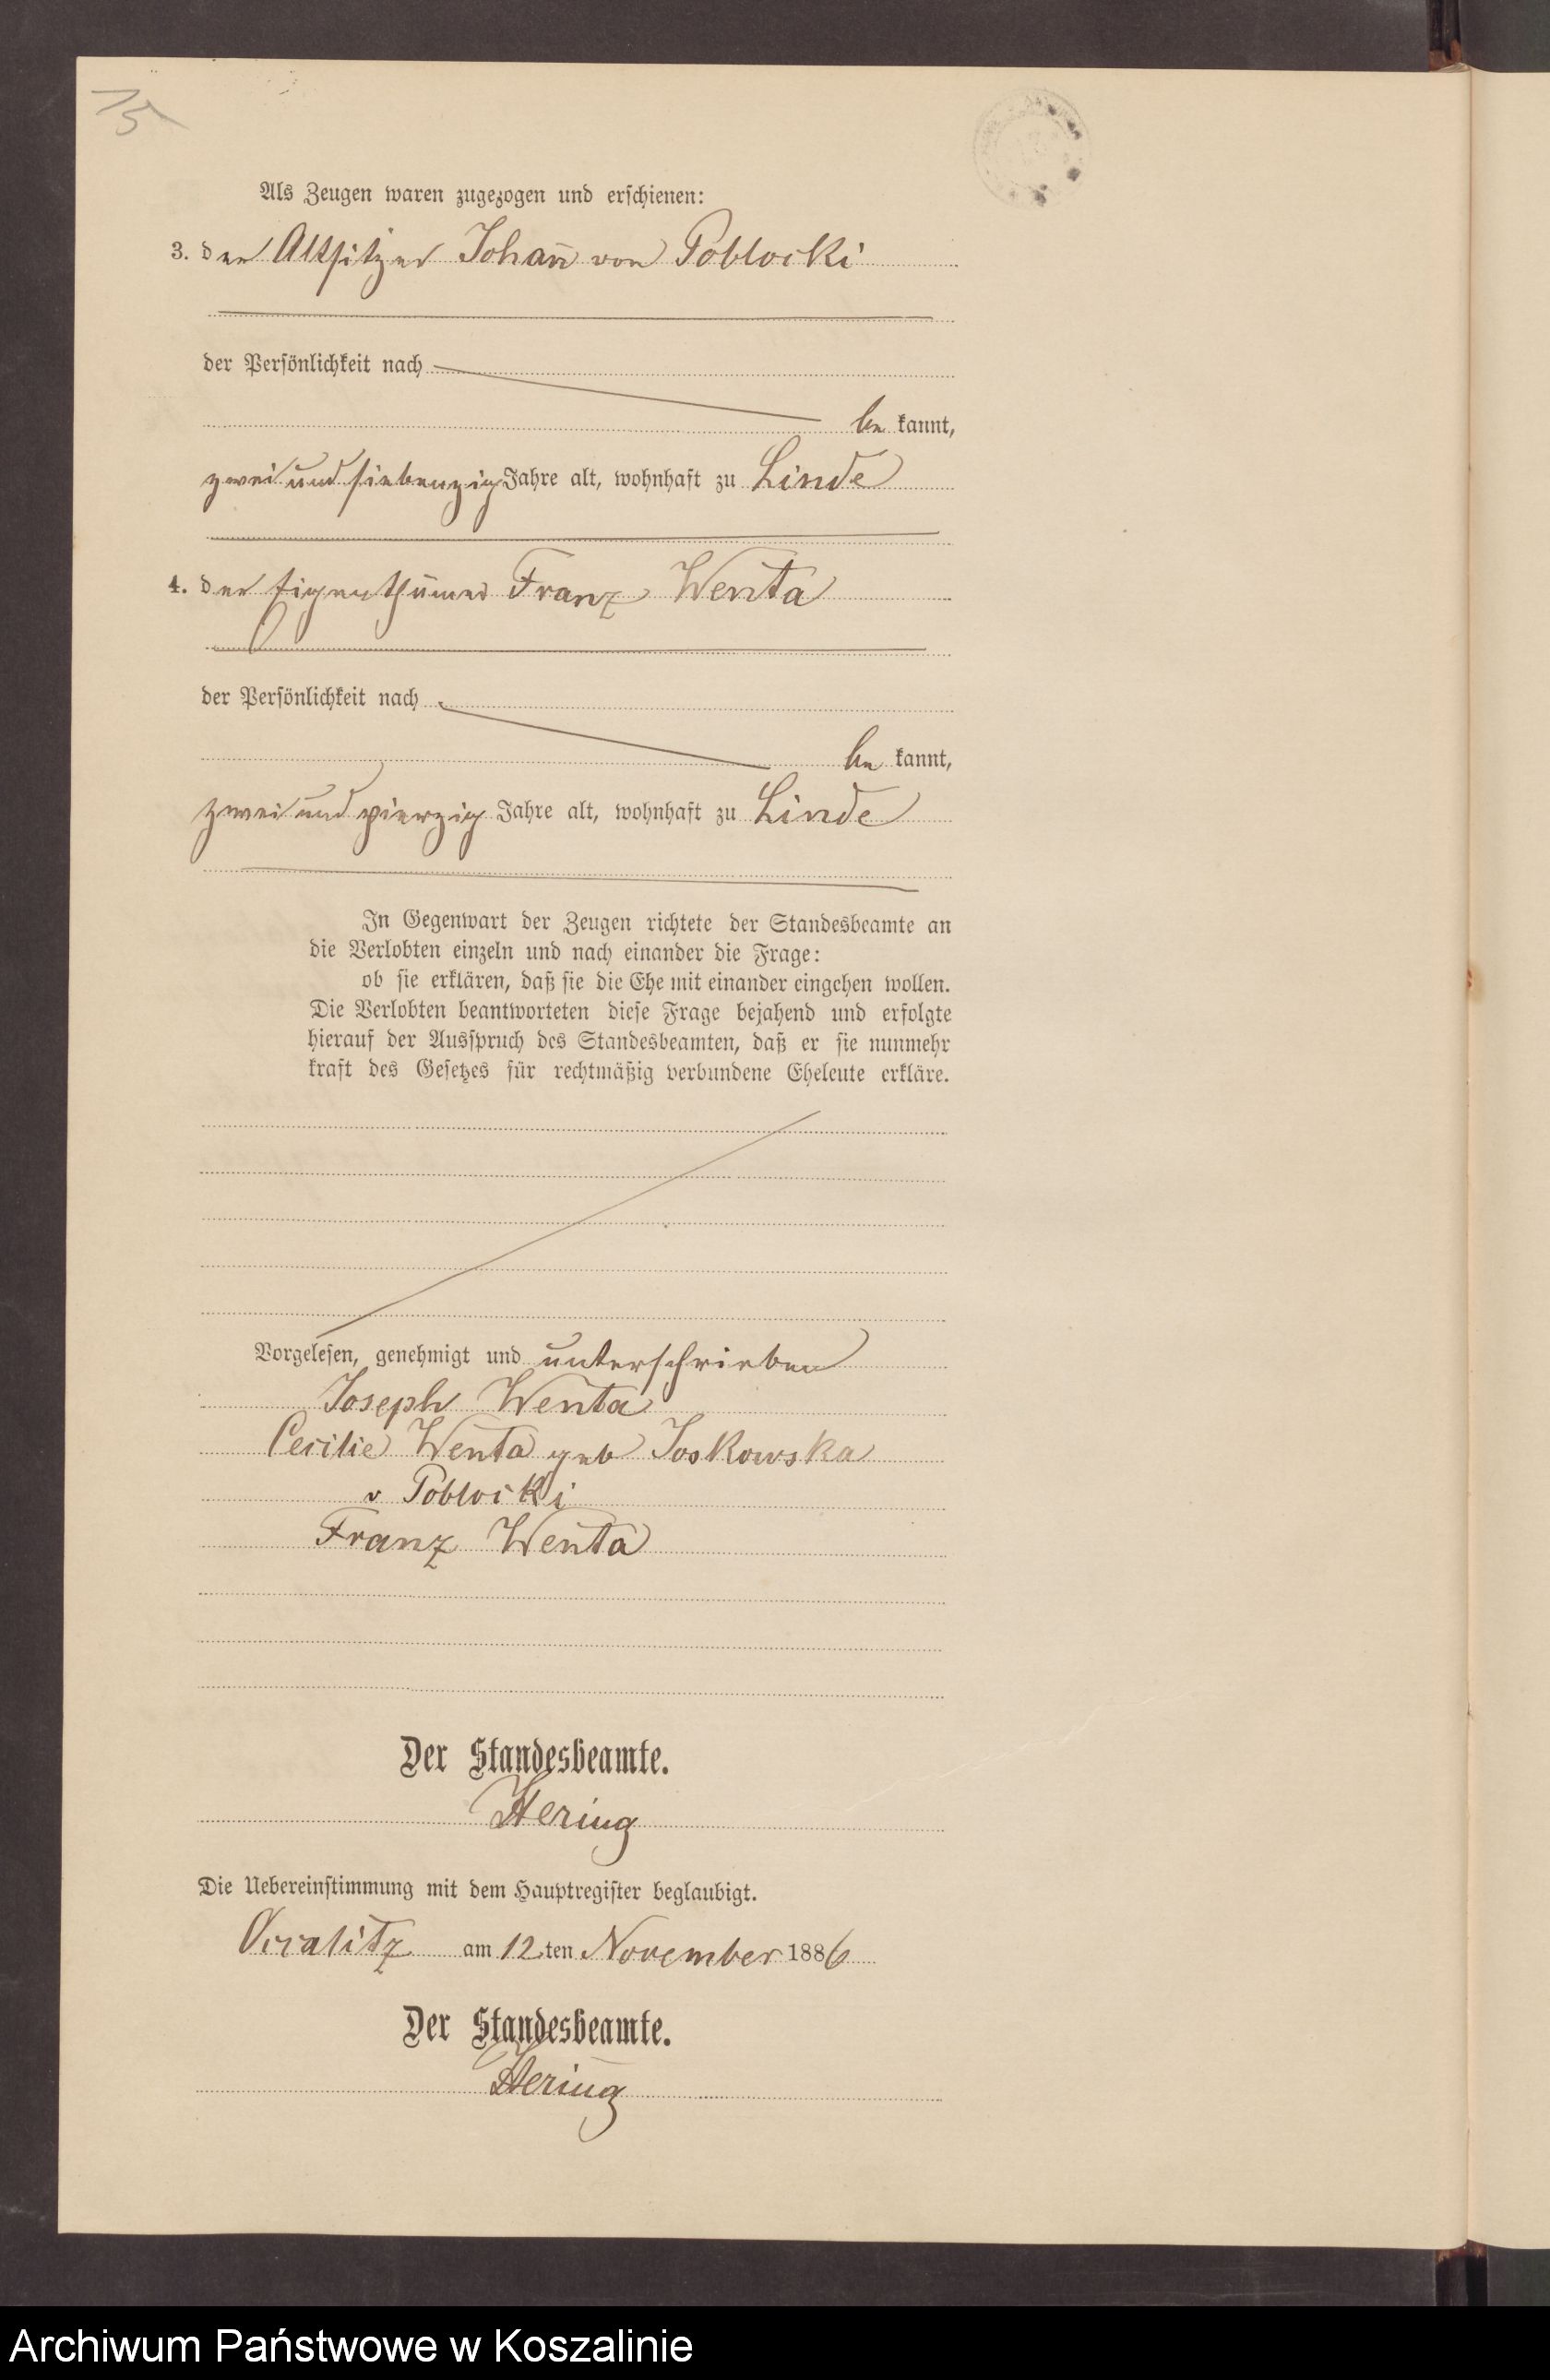 15
Als Zeugen waren zugezogen und erschienen:
3. der Altsitzer Johann von Poblocki
der Persönlichkeit nach
be kannt,
zwei und siebenzig Jahre alt, wohnhaft zu Linde
4. der Eigenthümer Franz Wenta
der Persönlichkeit nach
be kannt,
zwei und vierzig Jahre alt, wohnhaft zu Linde
In Gegenwart der Zeugen richtete der Standesbeamte an
die Verlobten einzeln und nach einander die Frage:
ob sie erklären, daß sie die Ehe mit einander eingehen wollen.
Die Verlobten beantworteten diese Frage bejahend und erfolgte
hierauf der Ausspruch des Standesbeamten, daß er sie nunmehr
kraft des Gesetzes für rechtmäßig verbundene Eheleute erkläre.
Vorgelesen, genehmigt und unterschrieben
Joseph Wenta
Cecilie Wenta geb Joskowska
v Poblocki
Franz Wenta
Der Standesbeamte.
Hering
Die Uebereinstimmung mit dem Hauptregister beglaubigt.
am 12 ten November 1886
Der Standesbeamte.
Hering
Archiwum Państwowe w Koszalinie